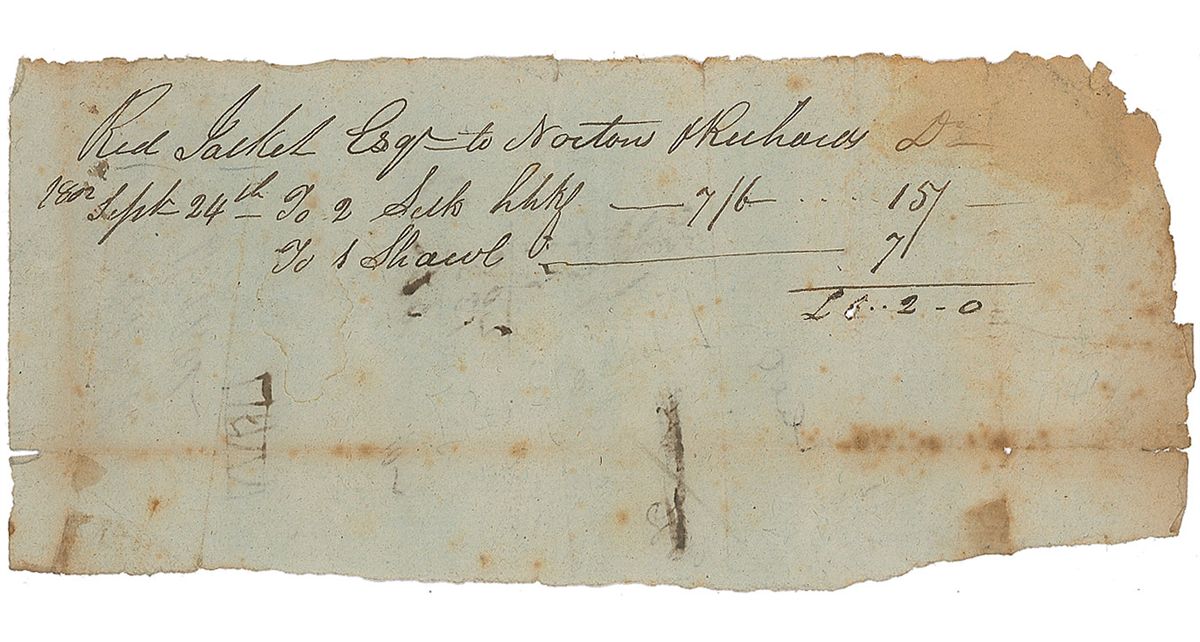 Red Jacket Esqr to Norton & Richards Dr
1802 Sept 24th To 2 Silk hhkfs — 7/6 .... 15/ —
To 1 Shawl — 7/
£1..2-0